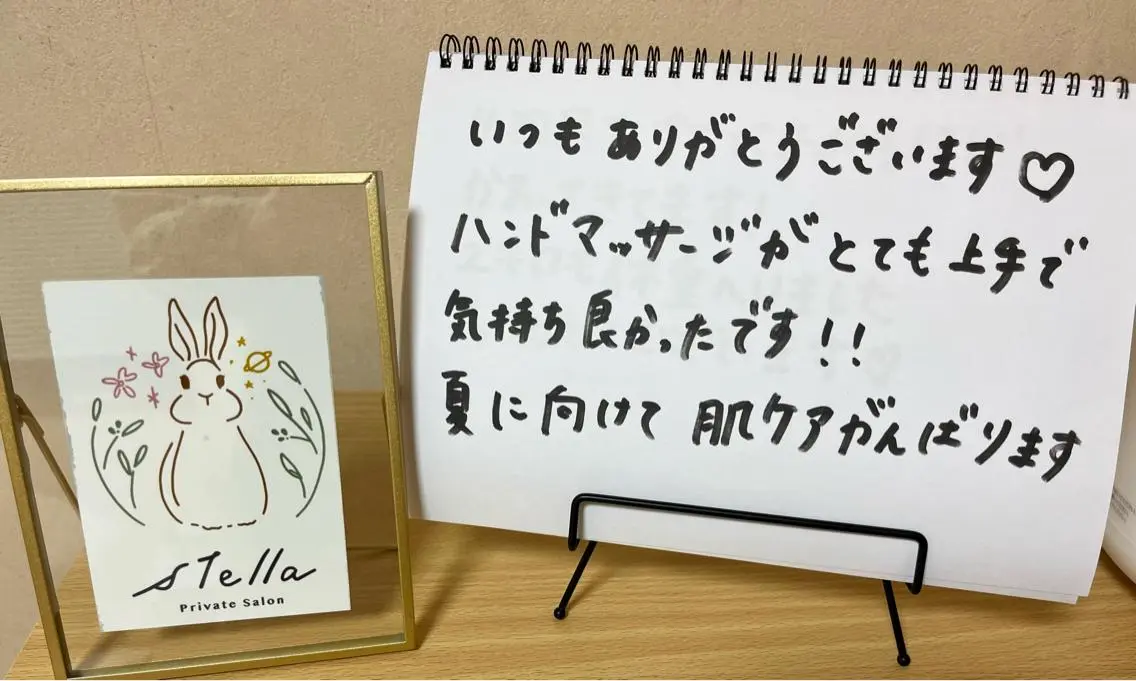 いつもありがとうございます♡
ハンドマッサージがとても上手で
気持ち良かったです!!
夏に向けて 肌ケアがんばります
stella
Private Salon